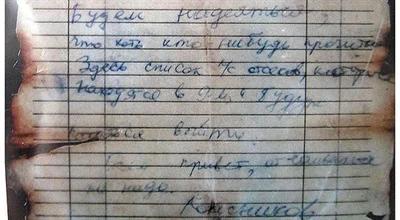 Будем надеяться,
что хоть кто-нибудь прочитает
Здесь список л/с отсеков, которые
находятся в 9-м и
выйти.
Всем привет, отчаиваться
не надо.
Колесников